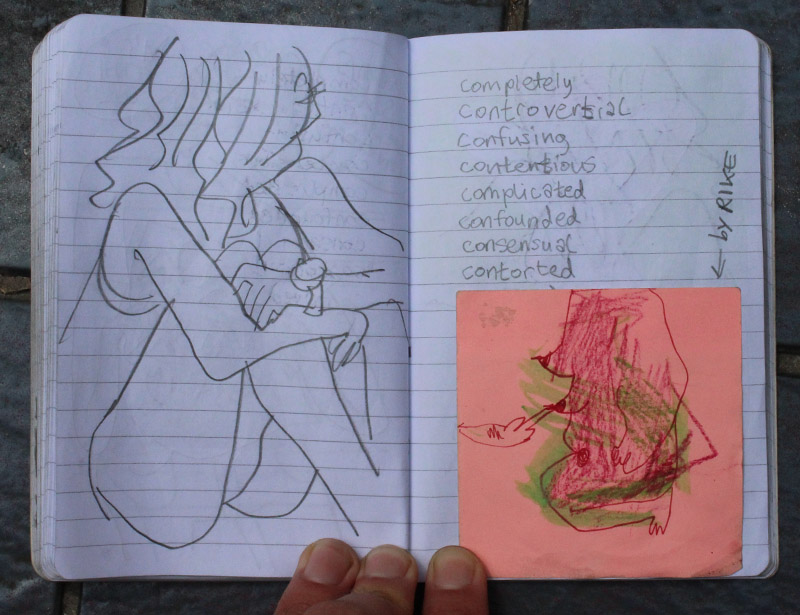 completely
controvertial
confusing
contentious
complicated
confounded
consensual
contorted
← by RIKE